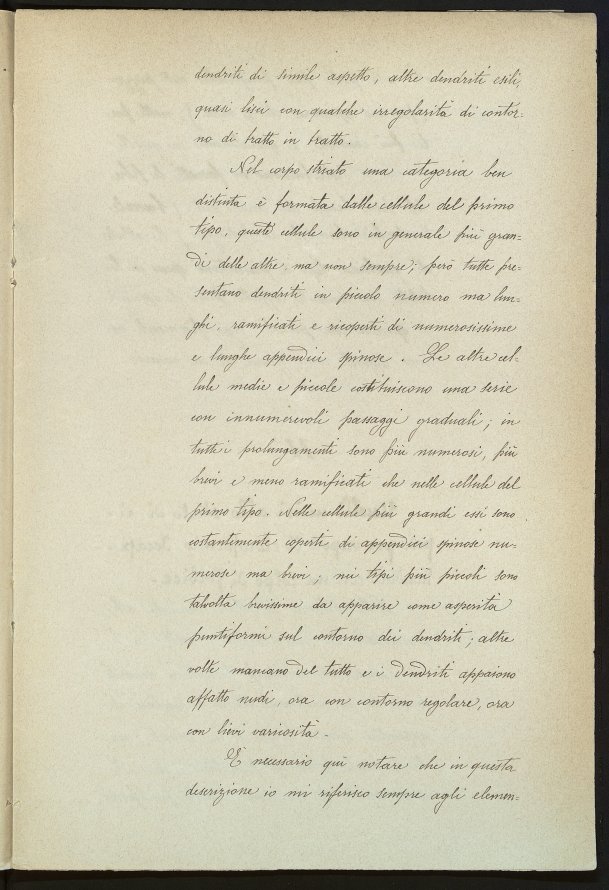 dendriti di simile aspetto, altre dendriti esili,
quasi lisci con qualche irregolarità di contor=
no di tratto in tratto.
Nel corpo striato una categoria ben
distinta è formata dalle cellule del primo
tipo, queste cellule sono in generale più gran=
di delle altre, ma non sempre; però tutte pre=
sentano dendriti in piccolo numero ma lun=
ghi, ramificati e ricoperti di numerosissime
e lunghe appendici spinose. Le altre cel=
lule medie e piccole costituiscono una serie
con innumerevoli passaggi graduali; in
tutte i prolungamenti sono più numerosi, più
brevi e meno ramificati che nelle cellule del
primo tipo. Nelle cellule più grandi essi sono
costantemente coperti di appendici spinose nu=
merose ma brevi; nei tipi più piccoli sono
talvolta brevissime da apparire come asperità
puntiformi sul contorno dei dendriti; altre
volte mancano del tutto e i dendriti appaiono
affatto nudi, ora con contorno regolare, ora
con lievi varicosità.
È necessario qui notare che in questa
descrizione io mi riferisco sempre agli elemen=